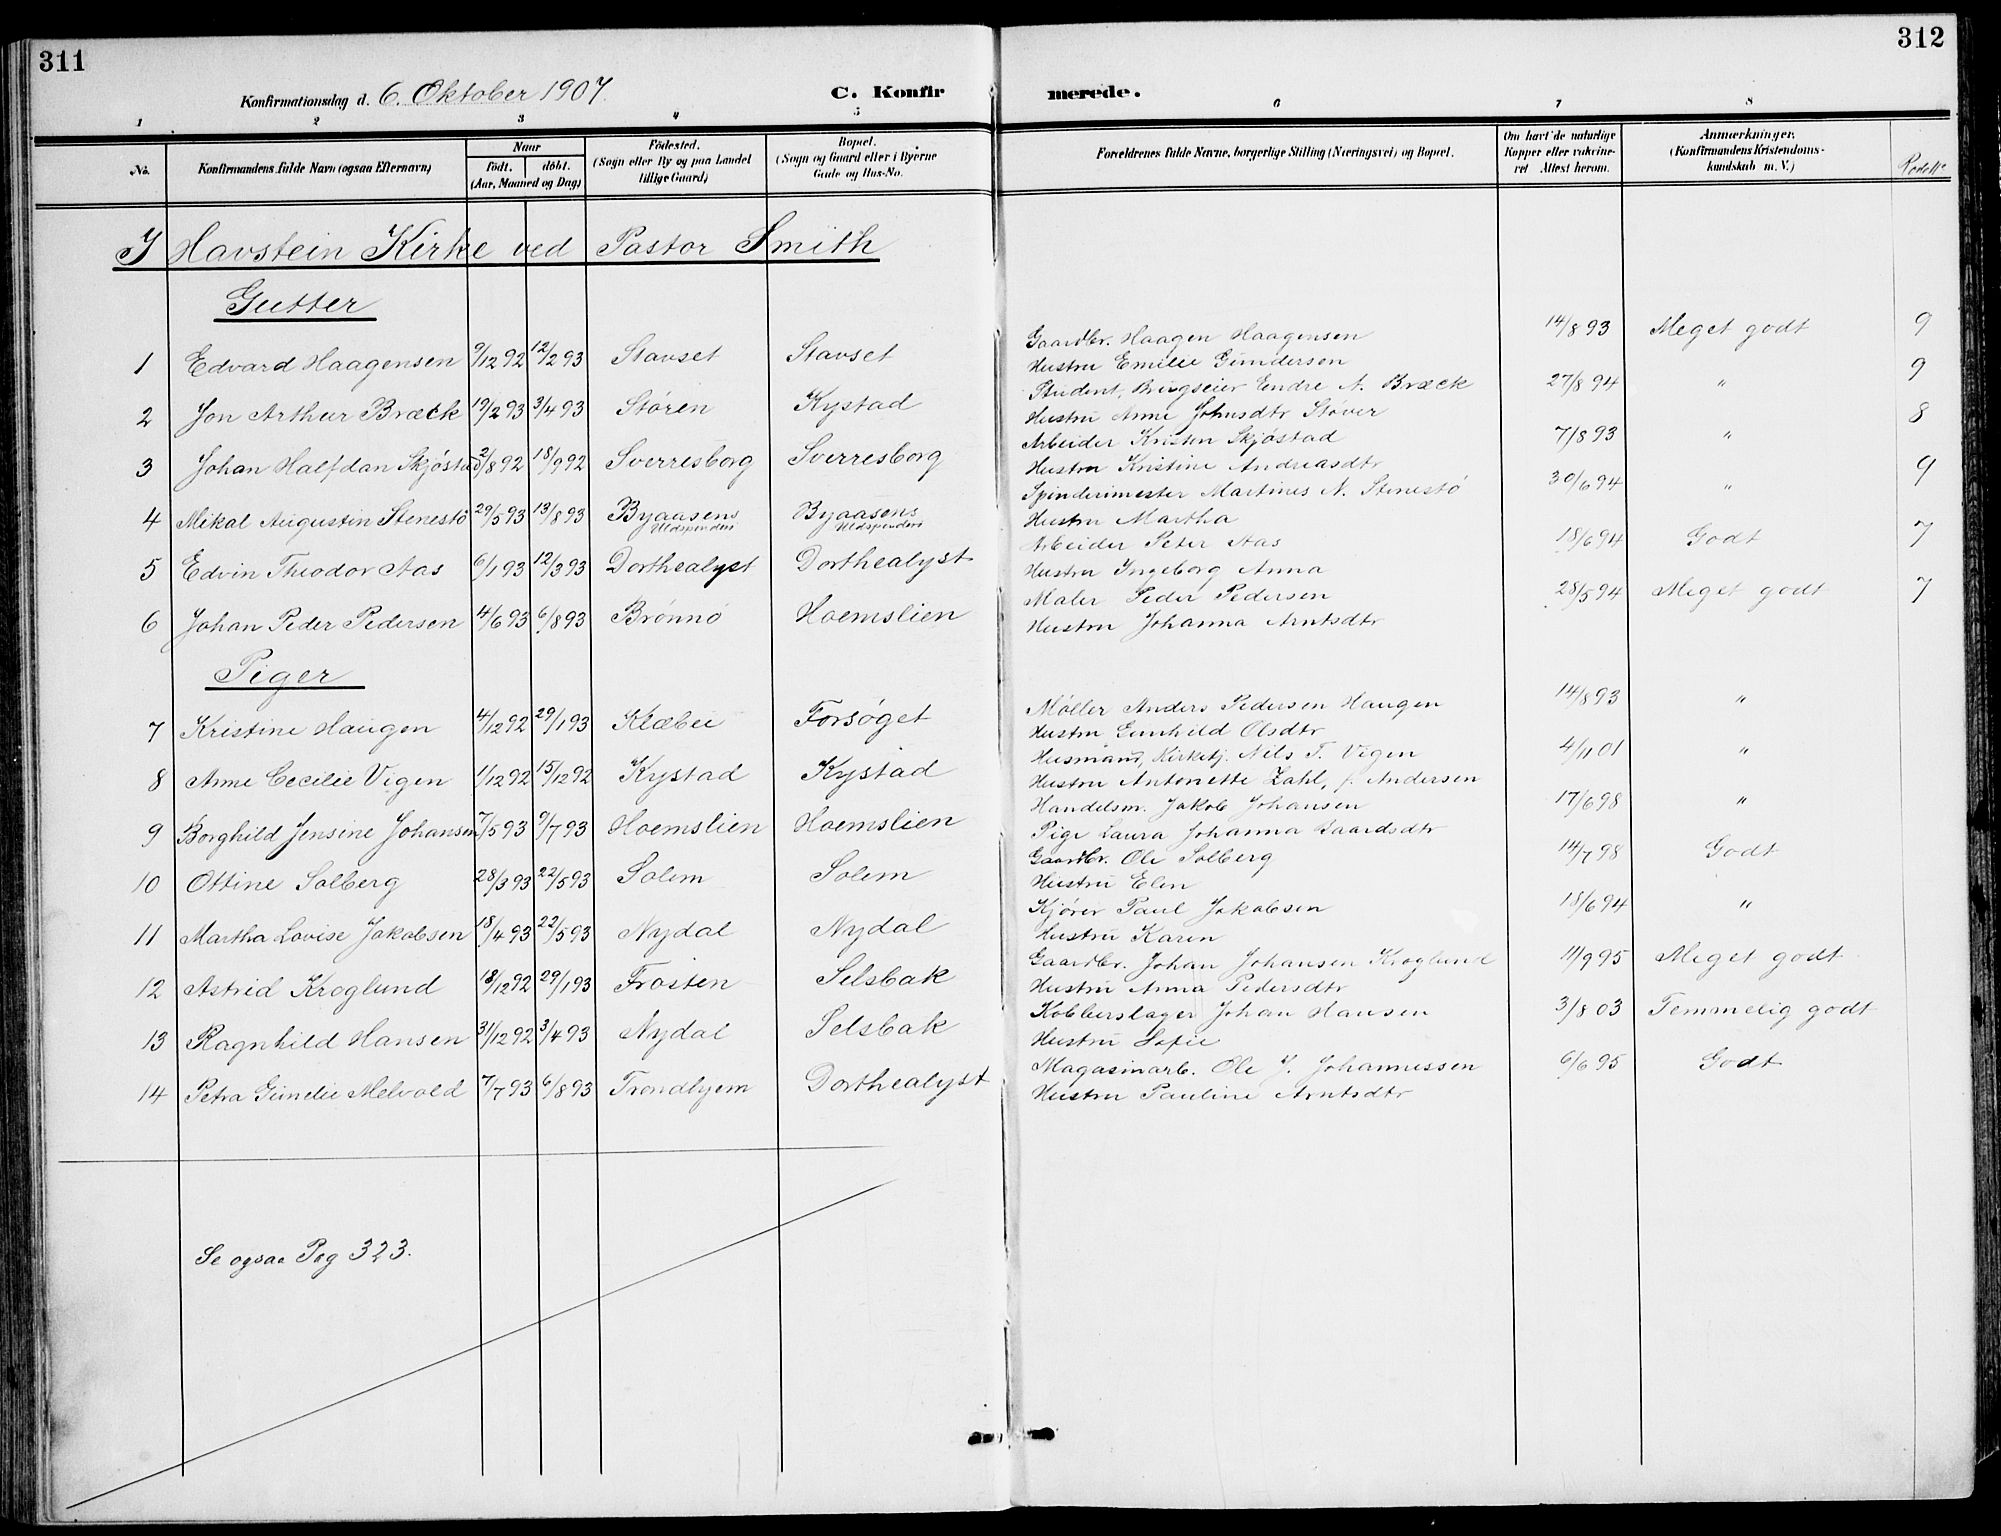 311
312
Konfirmationsdag d. 6. Oktober 1907.
C. Konfir merede.
1 2 3 4 5 6 7 8
No. Konfirmandens fulde Navn (ogsaa Efternavn) Naar født. døbt. (Aar, Maaned og Dag) Fødested. (Sogn eller By og paa Landet tillige Gaard) Bopæl. (Sogn og Gaard eller i Byerne Gade og Hus-No. Forældrenes fulde Navne, borgerlige Stilling (Næringsvei) og Bopæl. Om havt de naturlige Kopper eller vakcineret Attest herom. Anmærkninger. (Konfirmandens Kristendomskundskab m. V.)
I Havstein Kirke ved Pastor Smith
Gutter
1 Edvard Haagensen 9/12 92 12/2 93 Stavset Stavset Gaardbr. Haagen Haagensen 14/8 93 Meget godt 9
Hustru Emilie Gundersen
2 Jon Arthur Bræck 19/2 93 3/4 93 Støren Kystad Student, Brugseier Endre A. Bræck 27/8 94 " 9
Hustru Anne Johnsdtr Støver
3 Johan Halfdan Skjøstad 2/8 92 18/9 92 Sverresborg Sverresborg Arbeider Kristen Skjøstad 7/8 93 " 8
Hustru Kristine Andreasdtr
4 Mikal Augustin Stenestø 29/5 93 13/8 93 Byaasens Uldspinderi Byaasens Uldspinderi Spinderimester Martines N. Stenestø 30/6 94 " 9
Hustru Martha
5 Edvin Theodor Aas 6/1 93 12/3 93 Dorthealyst Dorthealyst Arbeider Peter Aas 18/6 94 Godt 7
Hustru Ingeborg Anna
6 Johan Peder Pedersen 4/6 93 6/8 93 Brønnø Hoemslien Maler Peder Pedersen 28/5 94 Meget godt 7
Hustru Johanna Arntsdtr
Piger
7 Kristine Haugen 4/12 92 29/1 93 Klæbu Forsøget Møller Anders Pedersen Haugen 14/8 93 "
Hustru Gunhild Olsdtr
8 Anne Cecilie Vigen 1/12 92 15/12 92 Kystad Kystad Husmand, Kirketj. Nils T. Vigen 4/11 01 "
Hustru Antonette Zahl, f. Andersen
9 Borghild Jensine Johansen 7/5 93 9/7 93 Hoemslien Hoemslien Handelsm. Jakob Johansen 17/6 98 "
Pige Laura Johanna Baardsdtr
10 Ottine Solberg 28/3 93 22/5 93 Solem Solem Gaardbr. Ole Solberg 14/7 98 Godt
Hustru Elen
11 Martha Lovise Jakobsen 18/4 93 22/5 93 Nydal Nydal Kjører Paul Jakobsen 18/6 94 "
Hustru Karen
12 Astrid Kroglund 18/12 92 29/1 93 Frosten Selsbak Gaardbr. Johan Johansen Kroglund 11/9 95 Meget godt
Hustru Anna Pedersdtr
13 Ragnhild Hansen 31/12 92 3/4 93 Nydal Selsbak Kobberslager Johan Hansen 3/8 03 Temmelig godt
Hustru Sofie
14 Petra Gunelie Melvold 7/7 93 6/8 93 Trondhjem Dorthealyst Magasinarb. Ole J. Johannessen 6/6 95 Godt
Hustru Pauline Arntsdtr
Se ogsaa Pag 323.